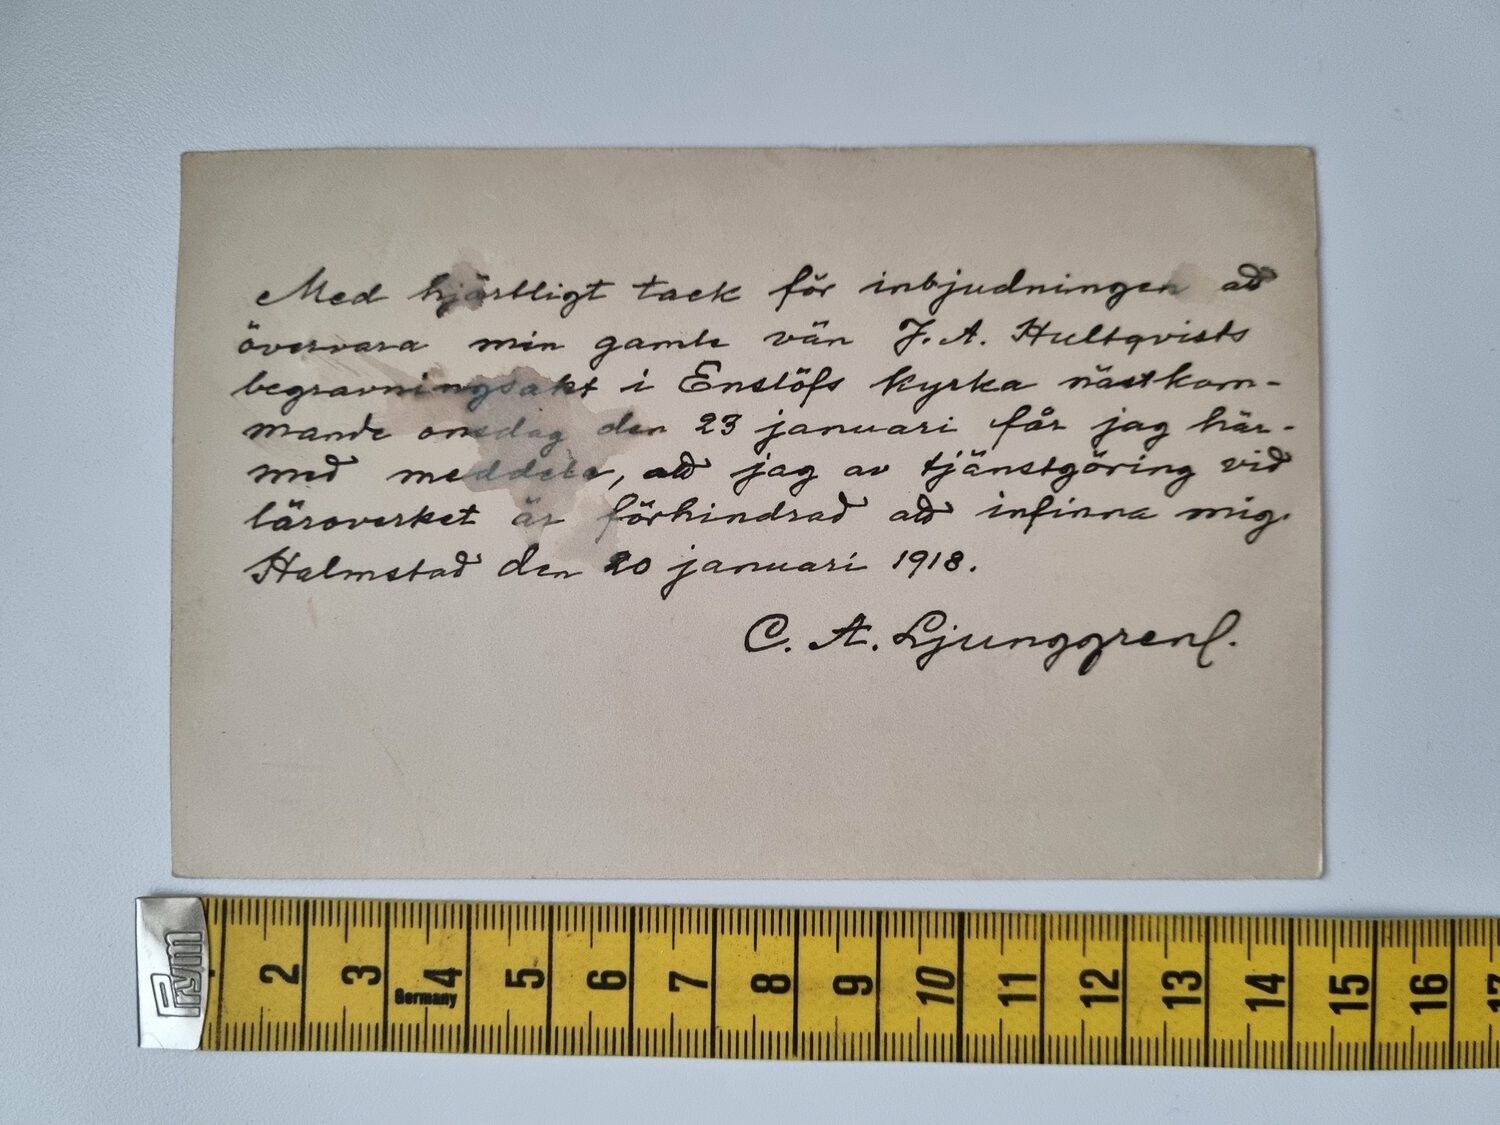 Med hjärtligt tack för inbjudningen att
övervara min gamle vän J. A. Hultqvists
begravningsakt i Enslöfs kyrka nästkom-
mande onsdag den 23 januari får jag här-
med meddela, att jag av tjänstgöring vid
läroverket är förhindrad att infinna mig.
Halmstad den 20 januari 1918.
C. A. Ljunggren.
Prym
2 3 4 5 6 7 8 9 10 11 12 13 14 15 16 17
Germany